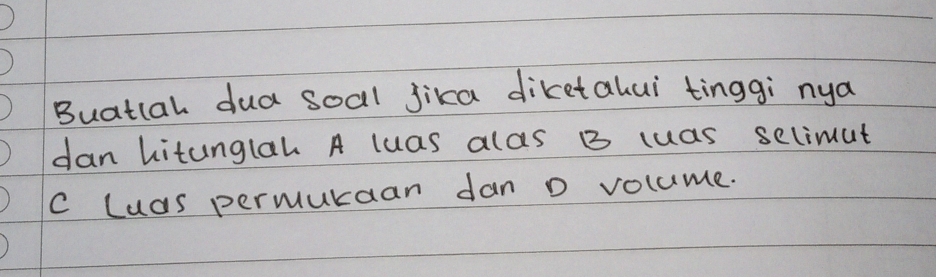 Buatlah dua soal jika diketahui tinggi nya
dan hitunglah A luas alas B luas selimut
C Luas permukaan dan D volume.